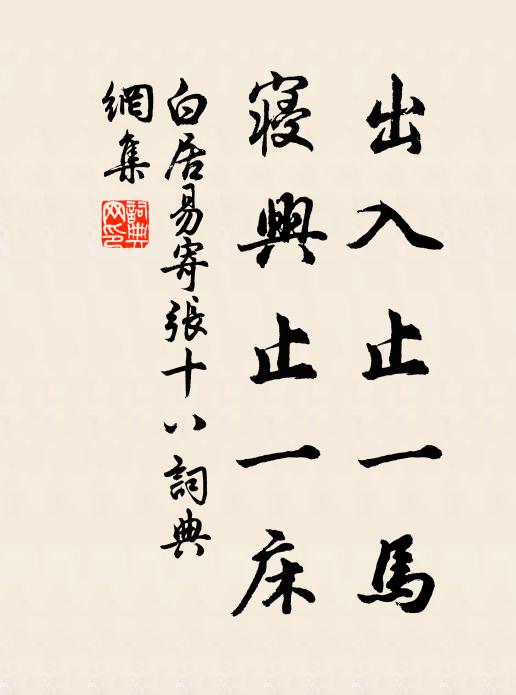 出入止一馬
寝興止一床
白居易寄張十八詞典
網集
詞典
网印